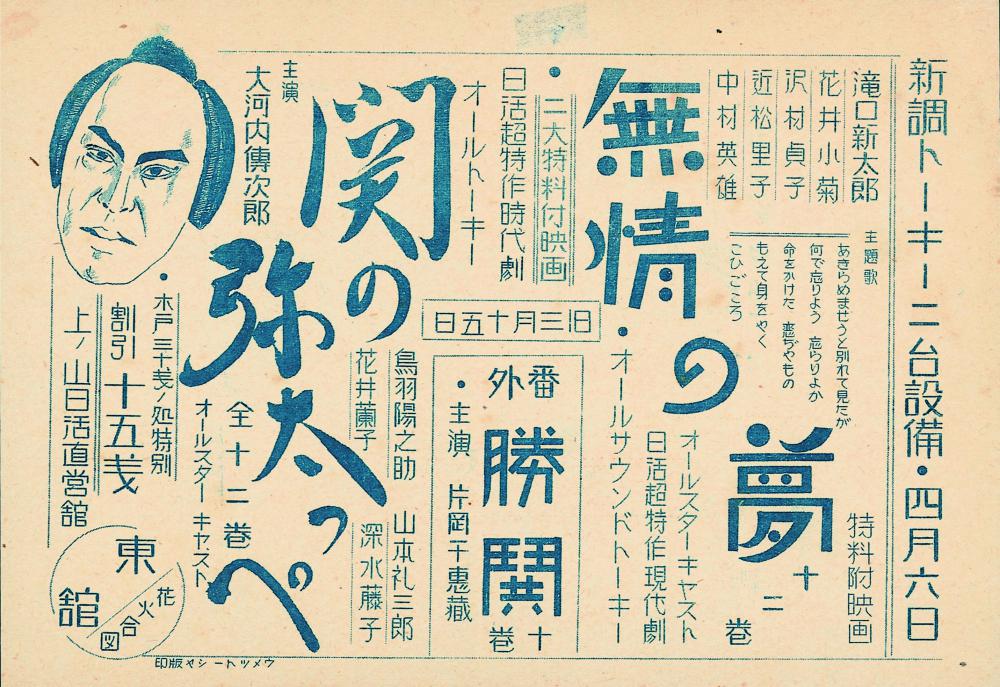 新調トーキー二台設備・四月六日
滝口新太郎
花井小菊
沢村貞子
近松里子
中村英雄
主題歌
あきらめませうと別れて見たが
何で忘りよう 忘らりよか
命をかけた 恋ぢやもの
もえて身をやく
こひごころ
特料附映画
無情の夢
十二巻
オールスターキャスト
日活超特作現代劇
・オールサウンドトーキー
・二大特料付映画
日活超特作時代劇
オールトーキー
旧三月十五日
番外
勝鬨
十巻
・主演 片岡千惠藏
関の弥太っぺ
主演
大河内傳次郎
鳥羽陽之助 山本礼三郎
花井蘭子 深水藤子
全十二巻
オールスターキャスト
・木戸三十戔ノ処特別
割引十五戔
上ノ山日活直営舘
東舘
花火合図
ウメツトーシヤ版印